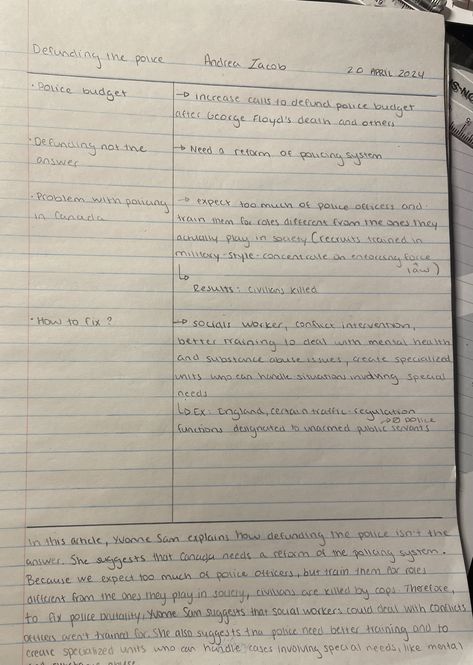 Defunding the police Andrea Iacob 20 APRIL 2024
• Police budget
→ increase calls to defund police budget
after George Floyd's death and others
• Defunding not the
answer
→ Need a reform of policing system
• Problem with policing
in Canada
→ expect too much of police officers and
train them for roles different from the ones they
actually play in society (recruits trained in
military-style-concentrate on enforcing force
law)
↳
Results: civilians killed
• How to fix?
→ socials worker, conflict intervention,
better training to deal with mental health
and substance abuse issues, create specialized
units who can handle situations involving special
needs
↳ Ex: England, certain traffic-regulation
functions designated to unarmed public servants
police
In this article, Yvonne Sam explains how defunding the police isn't the
answer. She suggests that Canada needs a reform of the policing system.
Because we expect too much of police officers, but train them for roles
different from the ones they play in society, civilians are killed by cops. Therefore,
to fix police brutality, Yvonne Sam suggests that social workers could deal with conflicts
officers aren't trained for. She also suggests tha police need better training and to
create specialized units who can handle cases involving special needs, like mental